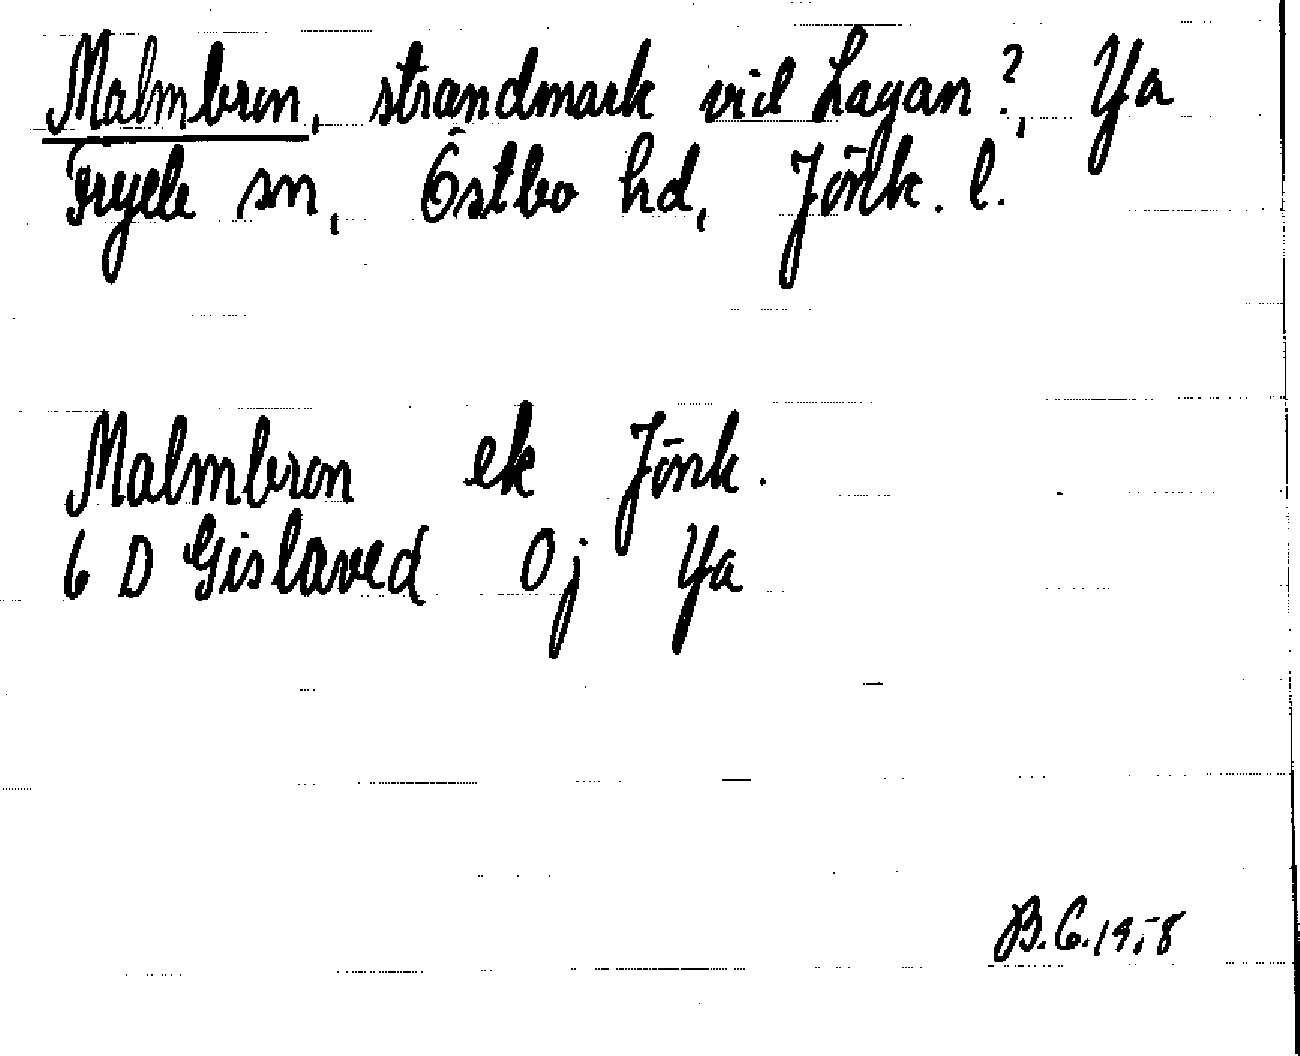 Malmbron, strandmark vid Lagan?, Ya
Fryele sn, Östbo hd, Jönk. l.
Malmbron ek Jönk.
6 D Gislaved 0j Ya
B.C. 1958